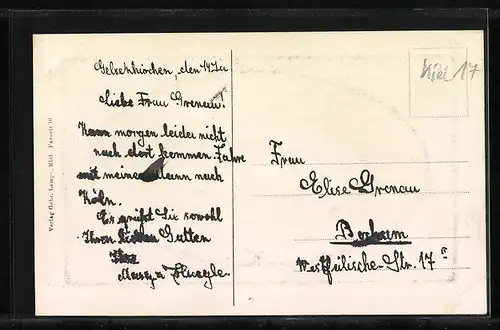 Gelsenkirchen, den 14.Ju
Liebe Frau Grenau!
Kann morgen leider nicht
nach dort kommen. Fahre
mit meinem Mann nach
Köln.
Es grüßt Sie sowohl
Ihren lieben Gatten
Ihre
Frau
Elise Grenau
Bochum
Westfälische-Str. 17
Kiel 17
Verlag Gebr. Lempe, Kiel.